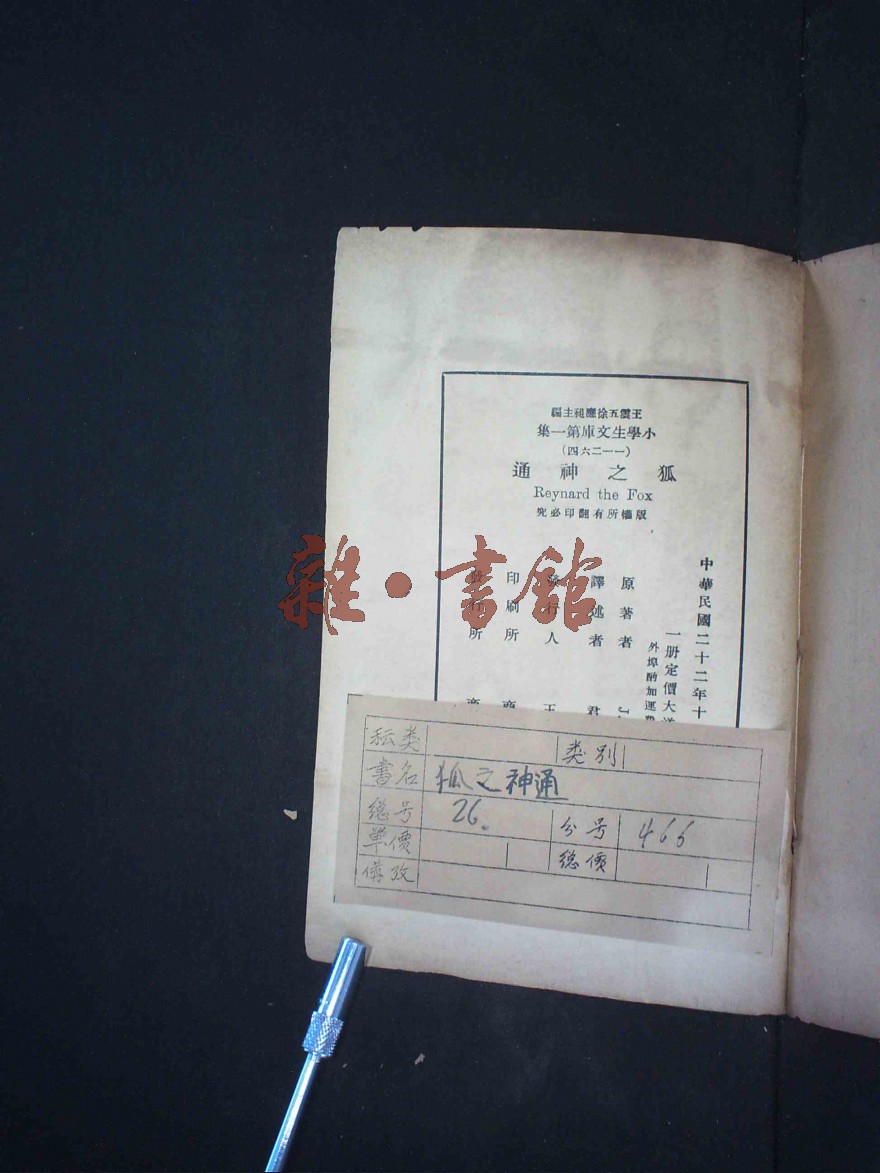 王雲五徐應昶主編
小學生文庫第一集
(一一二六四)
狐之神通
Reynard the Fox
版權所有翻印必究
中華民國二十二年十
一册定價大洋
外埠酌加運費
原著者 J.
譯述者 君
發行人 王
印刷所 商
發行所 商
雜·書館
种类
类別
書名 狐之神通
總号 26.
分号 466
單價
總價
備攷